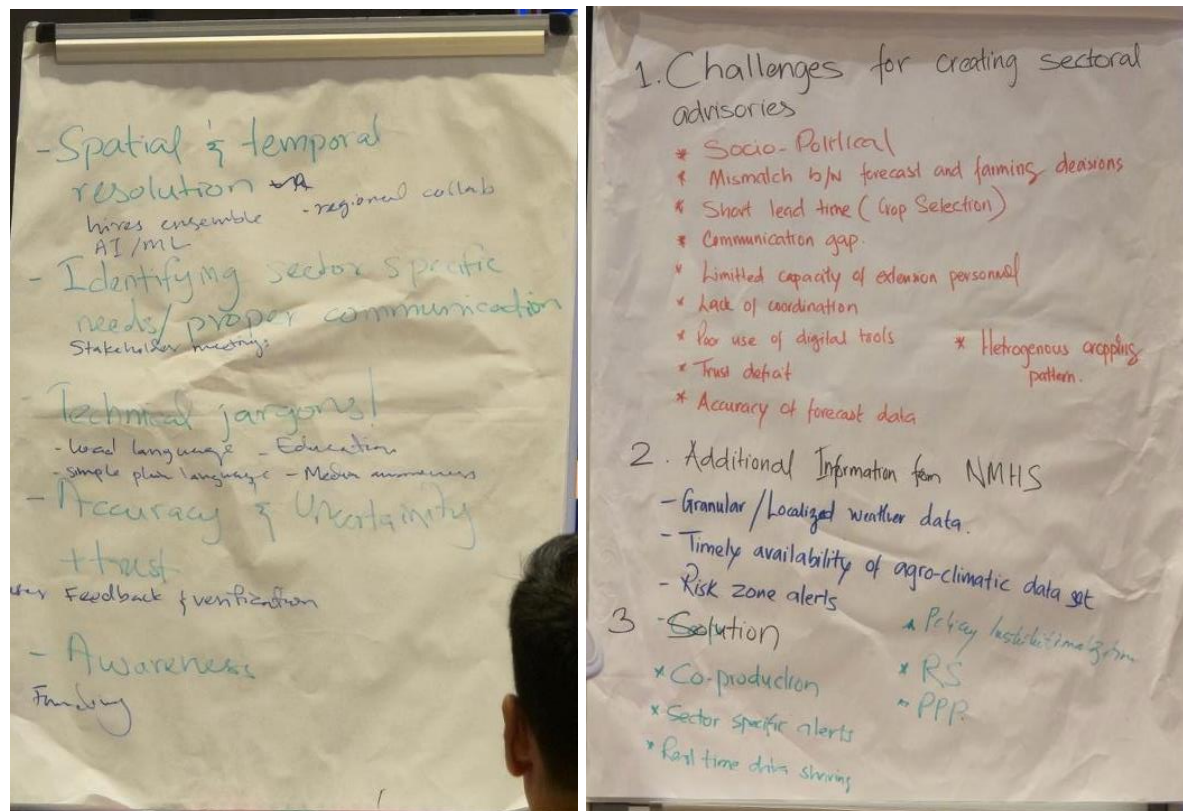 - Spatial & temporal
resolution
hires ensemble - regional collab
AI/ML
- Identifying sector specific
needs/proper communication
Stakeholder meetings
Technical jargons!
- local language - Education
- simple plain language - Media awareness
- Accuracy & Uncertainity
+ trust
Feedback & verification
- Awareness
Funding
1. Challenges for creating sectoral
advisories
* Socio-Political
* Mismatch b/w forecast and farming decisions
* Short lead time (Crop Selection)
* Communication gap.
* Limitted capacity of extension personnel
* Lack of coordination
* Poor use of digital tools
* Hetrogenous cropping
pattern.
* Trust deficit
* Accuracy of forecast data
2. Additional Information from NMHS
- Granular/Localized weather data.
- Timely availability of agro-climatic data set
- Risk zone alerts
3 - Solution
* Co-production
* Sector specific alerts
* Real time data shring
* Policy
* RS
* PPP.